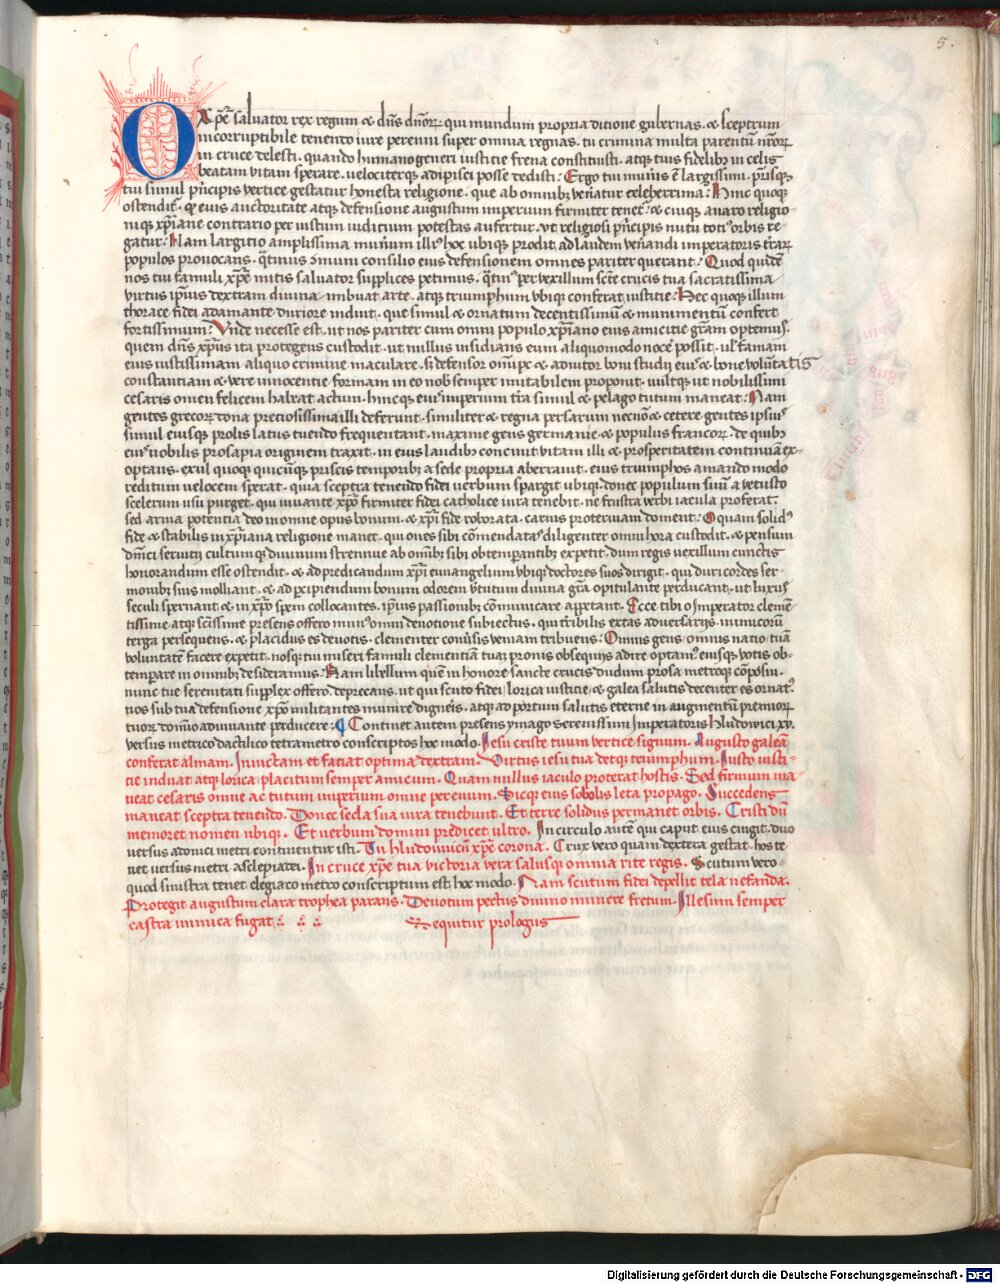 5.
O Xp̄e salvator rex regum & dn̄s dn̄oꝝ· qui mundum propria ditione gubernas· & sceptrum
incorruptibile tenendo iure perenni super omnia regnas· tu crimina multa parentū nr̄oꝝ
in cruce delesti· quando humano generi iusticie frena constituisti· atqꝫ tuis fidelibꝫ in celis
beatam vitam sperare· velociterqꝫ adipisci posse dedisti: Ergo tui mun̄is ē largissimi· prisqꝫ
tu simul pn̄cipis vertice gestatur honesta religione· que ab omnibꝫ ven̄atur celeberrima: Hinc quoqꝫ
ostendit· qꝫ eius auctoritate atqꝫ defensione augustum imperium firmiter tenet᷑· & cuiqꝫ avaro religio-
niqꝫ xp̄iane contrario per iustum iudicium potestas aufertur· ut religiosi pn̄cipis nutu toti᷒ orbis re-
gatur: Nam largitio amplissima mun̄um illi᷒ hoc ubiqꝫ prodit· ad laudem ven̄andi imperatoris t̄rarꝝ
populos provocans· q̄tinus ūnum consilio eius defensionem omnes pariter querant: Quod quidē
nos tui famuli xp̄e mitis salvator supplices petimus· q̄tin᷒ per vexillum sct̄e crucis tua sacratissima
virtus ip̄ius dextram divina imbuat arte· atqꝫ triumphum ubiqꝫ conferat iusticie: Hec quoqꝫ illum
thorace fidei adamante duriore induit· que simul & ornatum decentissimū & munimentū confert
fortissimum: Unde necesse est· ut nos pariter cum omni populo xp̄iano eius amicitie gr̄am optem᷒·
quem dn̄s xp̄ius ita protegens custodit· ut nullus insidians eum aliquomodo nocē possit· ul᷑ famam
eius iustissimam aliquo crimine maculare· sꝫ defensor om̄ipc̄ & adiutor boni studii eius᷒ & bone volūtatis
constantiam & vere innocentie formam in eo nob semper imitabilem proponit· iustqꝫ ut nobilissimi
cesaris omen felicem habeat actum· hincqꝫ eius᷒ imperium t̄ra simul & pelago tutum maneat: Nam
gentes grecoꝝ dona preciosissima illi deferunt· similiter & regna persarum necnō & cetere gentes ipsius᷒
simul eiusqꝫ prolis latus tuendo frequentant· maxime gens germanie & populus francoꝝ· de quibꝫ
eius᷒ nobilis prosapia originem traxit· in eius laudibꝫ concinit vitam illi & prosperitatem continuā ex-
optans· exul quoqꝫ quicūqꝫ priscis temporibꝫ a sede propria aberravit· eius triumphos amando modo
reditum velocem sperat· quia sceptra tenendo fidei verbum spargit ubiqꝫ· donec populum suū a vetusto
scelerum usu purget· qui iuvante xp̄o firmiter fidei catholice iura tenebit· ne frustra verbi iacula proferat·
sed arma potentia deo in omne opus bonum· & xp̄i fide roborata· carnis protervam doment: O quam solid᷒
fide & stabilis in xp̄iana religione manet· qui oves sibi cōmendatas diligenter omni hora custodit· & pensum
dn̄ici servitij cultumqꝫ divinum strennue ab omibꝫ sibi obtemperantibꝫ expetit· dum regis vexillum cunctis
honorandum esse ostendit· & ad predicandum xp̄i euuangelium ubiqꝫ doctores suos dirigit· qui duricordes ser-
monibꝫ suis molliant· & ad percipiendum bonum odorem v̄tutum divina gr̄a opitulante perducant· ut luxus᷒
seculi spernant & in xp̄o spem collocantes· ip̄ius passionibꝫ cōmunicare appetant· Ecce tibi o Imperator clemē-
tissime atqꝫ sc̄issime presens offero mun᷒ omni devotione subiectus· qui t̄ribilis extas adversarijs· inimicorū
terga persequens· & placidus es devotis· clementer conv̄sis veniam tribuens: Omnis gens omnis natio tuā
voluntatē facere expetit· nosqꝫ tui miseri famuli clementiā tuaꝫ pronis obsequijs adire optam᷒ eiusqꝫ votis ob-
temperare in omnibꝫ desideramus: Nam libellum quē in honore sancte crucis dudum prosa metroqꝫ cōposui·
nunc tue serenitati supplex offero· deprecans· ut qui scuto fidei lorica iusticie & galea salutis decenter es ornat᷒·
nos sub tua defensione xp̄o militantes munire digneris· atqꝫ ad portum salutis eterne in augmentū premioꝝ
tuoꝝ domino adiuvante perducere: ¶ Continet autem presens ymago serenissimi Imperatoris Hludovici xxxv
versus metrico dactilico tetrametro conscriptos hoc modo· Iesu criste tuum vertice signum· Augusto galeā
conferat almam· Invictam et faciat optima dextram· Virtus iesu tua detqꝫ triumphum· Iusto iusti-
tie induat atqꝫ lorica· placitum semper amicum· Quam nullus iaculo proterat hostis· Sed firmum ma-
neat cesaris omne ac tutum imperium omne perenum· Dicqꝫ eius sobolis leta propago· Succedens
maneat sceptra tenendo· Donec secla sua iura tenebunt· Et terre solidus permanet orbis· Cristi dū
memoret nomen ubiqꝫ· Et verbum domini predicet ultro· In circulo autē qui caput eius cingit· duo
versus adonici metri continentur isti· Tu hludovvicū xp̄e corona· Crux vero quam dextera gestat· hos te-
net versus metri asclepiadei· In cruce xp̄e tua victoria vera salusqꝫ omnia rite regis· Scutum vero-
quod sinistra tenet elegiaco metro conscriptum est hoc modo· Nam scutum fidei depellit tela nefanda·
Protegit augustum clara trophea parans· Devotum pectus divino munere fretum· Illesum semper
castra inimica fugat ∴ ∴ ∴ Sequitur prologus
Digitalisierung gefördert durch die Deutsche Forschungsgemeinschaft - DFG